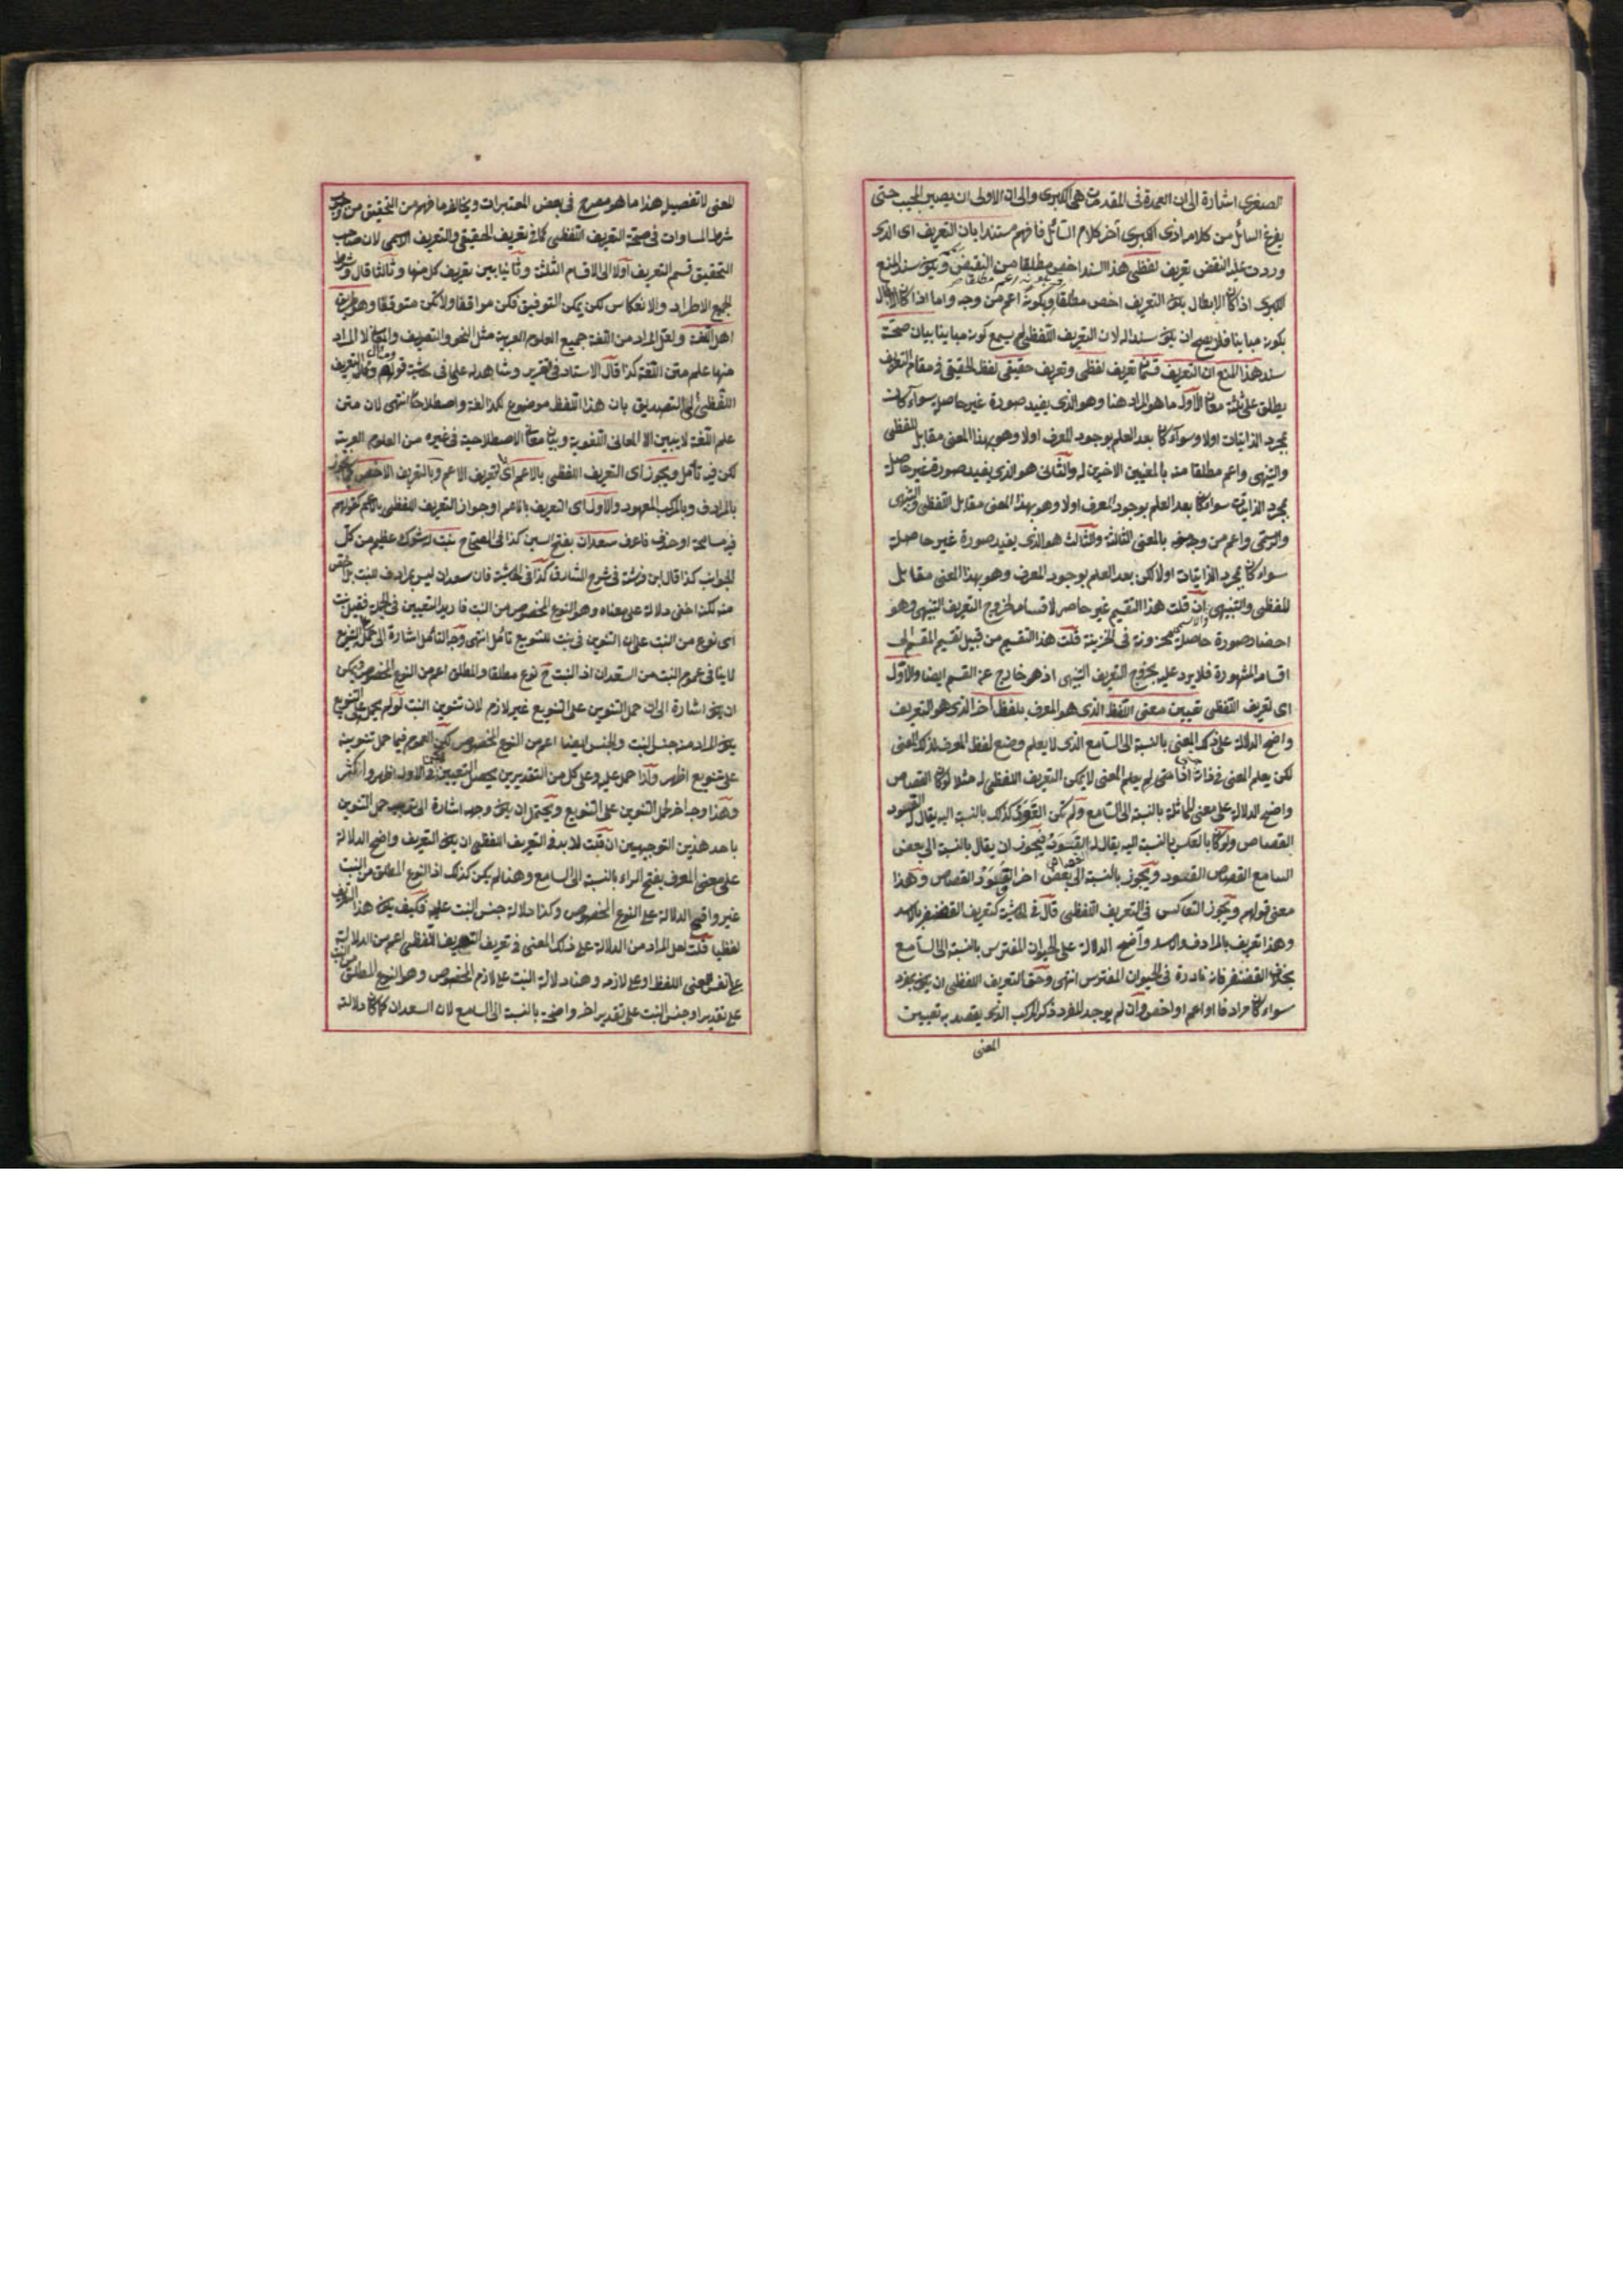 الصغرى اشارة الى ان العمدة فى المقدمات هى الكبرى والى ان الاولى ان يصير المجيب حتى
يفرغ السائل من كلامه اذ الكبرى آخر كلام السائل فافهم مستندا بان التعريف اى الذى
وردت عليه النقض تعريف لفظى هذا السند اخص مطلقا من النقيض ويكون سند المنع
الكبرى اذا كان الابطال بكون التعريف اخص مطلقا وبكونه اعم من وجه واما اذا كان الابطال
بكونه مباينا فلا يصح ان يكون سندا له لان التعريف اللفظى لم يسمع كونه مباينا بيان صحة
سند هذا المنع ان التعريف قسمان تعريف لفظى وتعريف حقيقى لفظ الحقيقى فى مقام التعريف
يطلق على ثلثة معان الاول ما هو المراد هنا وهو الذى يفيد صورة غير حاصلة سواء كانت
بمجرد الذاتيات اولا وسواء كان بعد العلم بوجود المعرف اولا وهو بهذا المعنى مقابل للفظى
والتنبيهى واعم مطلقا منه بالمعنيين الاخيرين له والثانى هو الذى يفيد صورة غير حاصلة
بمجرد الذاتيات سواء كان بعد العلم بوجود المعرف اولا وهو بهذا المعنى مقابل للفظى والتنبيهى
والرسمى واعم من وجه منه بالمعنى الثالث والثالث هو الذى يفيد صورة غير حاصلة
سواء كان بمجرد الذاتيات اولا لكن بعد العلم بوجود المعرف وهو بهذا المعنى مقابل
للفظى والتنبيهى والاسمى ان قلت هذا التقسيم غير حاصر لاقسامه لخروج التعريف التنبيهى وهو
احضار صورة حاصلة مخزونة فى الخزينة قلت هذا التقسيم من قبيل تقسيم المقسم الى
اقسامه المشهورة فلا يرد عليه بخروج التعريف التنبيهى اذ هو خارج عن القسم ايضا والاول
اى تعريف اللفظى تعيين معنى اللفظ الذى هو المعرف بلفظ آخر الذى هو التعريف
واضح الدلالة على ذلك المعنى بالنسبة الى السامع الذى لا يعلم وضع لفظ المعرف لذلك المعنى
لكن يعلم المعنى فى ذاته اذا متى لم يعلم المعنى لا يمكن التعريف اللفظى له مثلا لو كان القصاص
واضح الدلالة على معنى المماثلة بالنسبة الى السامع ولم تكن القود كذلك بالنسبة اليه يقال له القود
القصاص ولو كان بالعكس بالنسبة اليه يقال له القود فيجوز ان يقال بالنسبة الى بعض
السامع القصاص القود ويجوز بالنسبة الى بعض آخر القود القصاص وهذا
معنى قولهم ويجوز التعاكس فى التعريف اللفظى قال فى الحاشية كتعريف الغضنفر بالاسد
وهذا تعريف بالمرادف والاسد واضح الدلالة على الحيوان المفترس بالنسبة الى السامع
بخلاف الغضنفر فانه نادرة فى الحيوان المفترس انتهى وحق التعريف اللفظى ان يكون بمفرد
سواء كان مرادفا او اعم او اخص وان لم يوجد المفرد ذكر المركب الذى يقصد به تعيين
المعنى
المعنى لا تفصيله هذا ما هو مصرح فى بعض المعتبرات ويخالفه ما فهم من التحقيق من وجوب
شرط المساوات فى صحة التعريف اللفظى كما فى تعريف الحقيقى والتعريف الاسمى لان صاحب
التحقيق قسم التعريف اولا الى الاقسام الثلثة وثانيا بين تعريف كل منها وثالثا قال وشرط
الجميع الاطراد والانعكاس لكن يمكن التوفيق فكن موافقا ولا تكن متوقفا وهو طريق
اهل اللغة ولعل المراد من اللغة جميع العلوم العربية مثل النحو والتصريف والمعانى لا المراد
منها علم متن اللغة كذا قال الاستاد فى تقريره وشاهده على ما فى حاشية قولهم ومآل التعريف
اللفظى الى التصديق بان هذا اللفظ موضوع لكذا لغة واصطلاحا انتهى لان متن
علم اللغة لا يبين الا المعانى اللغوية وبيان معانى الاصطلاحية فى غيره من العلوم العربية
لكن فيه تأمل ويجوز اى التعريف اللفظى بالاعم اى بتعريف الاعم وبالتعريف الاخص كما يجوز
بالمرادف وبالمركب المعهود والاول اى التعريف بالاعم او جواز التعريف اللفظى بالاعم كقولهم
فيه مسامحة او حذف فاعرف سعدان بفتح السين كذا فى المصباح نبت له شوك عظيم من كل
الجوانب كذا قال ابن فرشته فى شرح المشارق كذا فى الحاشية فان سعدان ليس بمرادف للنبت بل اخص
منه لكن اخفى دلالة على معناه وهو النوع المخصوص من النبت فاريد التعيين فى الجملة فقيل نبت
اى نوع من النبت على ان التنوين فى نبت للتنويع تأمل انتهى وجه التأمل اشارة الى حمل التنويع
لا ينافى عموم النبت من السعدان اذ النبت ح نوع مطلقا والمطلق اعم من النوع المخصوص فيمكن
ان يكون اشارة الى ان حمل التنوين على التنويع غير لازم لان تنوين النبت لو لم يحمل على التنويع
يكون المراد منه جنس النبت والجنس ايضا اعم من النوع المخصوص لكن العموم فيما حمل تنوينه
على تنويع اظهر واذا حمل عليه وعلى كل من التقديرين يحصل التعيين والاول اظهر واكثر
وهذا وجه آخر لحمل التنوين على التنويع ويحتمل ان يكون وجه اشارة الى توجيه حمل التنوين
باحد هذين التوجيهين ان قلت لا بد فى التعريف اللفظى ان يكون التعريف واضح الدلالة
على معنى المعرف بفتح الراء بالنسبة الى السامع وهنا لم يكن كذلك اذ النوع المطلق من النبت
غير واضح الدلالة على النوع المخصوص وكذا دلالة جنس النبت عليه فكيف يكون هذا التعريف
لفظيا قلت لعل المراد من الدلالة على ذلك المعنى فى تعريف التعريف اللفظى اعم من الدلالة
على نفس معنى اللفظ او على لازمه وهنا دلالة النبت على لازم المخصوص وهو النوع المطلق من النبت
على تقدير او جنس النبت على تقدير آخر واضحة بالنسبة الى السامع لان السعدان كما كان دلالته